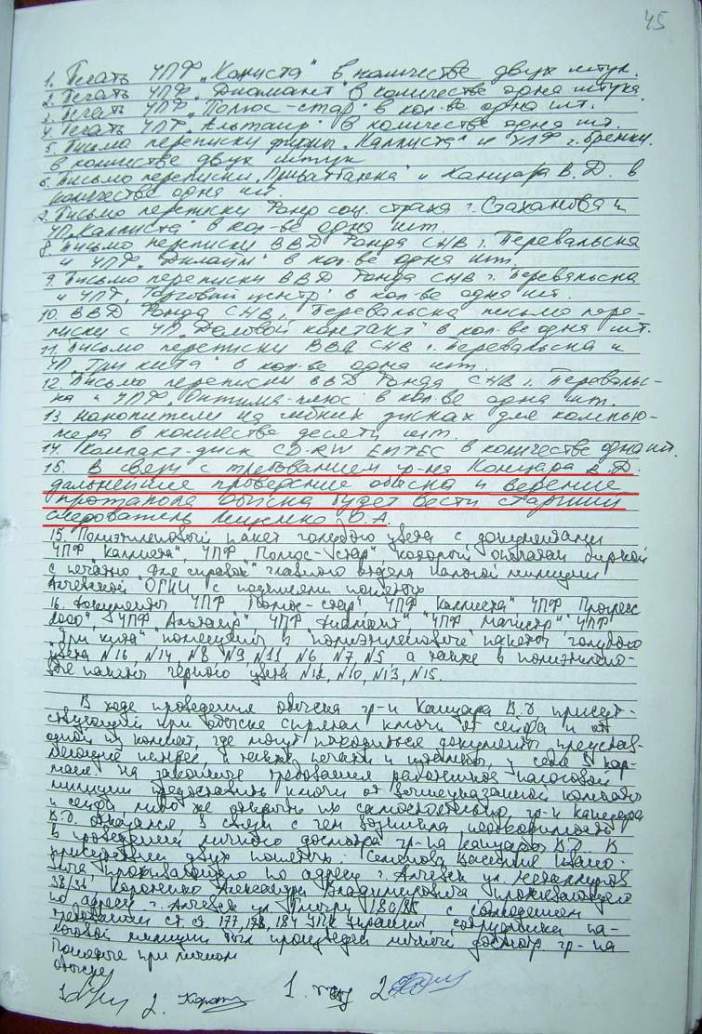 45
1. Печать ЧПФ „Каллиста" в количестве двух штук.
2. Печать ЧПФ „Диамант" в количестве одна штука
3. Печать ЧПФ „Полюс-стар" в кол-ве одна шт.
4. Печать ЧПФ „Альтаир" в количестве одна шт.
5. Письма переписки фирмы „Каллиста" и ЧПФ г. Брянки
в количестве двух штук
6. Письмо переписки „Приватбанка" и Канцара В. Д. в
количестве одна шт.
7. Письмо переписки Фонд соц. страха г. Стаханова и
ЧП „Каллиста" в кол-ве одна шт.
8. Письмо переписки ВВД Фонда СНВ г. Перевальска
и ЧПФ в кол-ве одна шт.
9. Письмо переписки ВВД Фонда СНВ г. Перевальска
и ЧПФ „Торговый центр" в кол-ве одна шт.
10. ВВД Фонда СНВ г. Перевальска письмо пере-
писки с ЧП „Деловой контакт" в кол-ве одна шт.
11. Письмо переписки ВВД СНВ г. Перевальска и
ЧП „Три кита" в кол-ве одна шт.
12. Письмо переписки ВВД Фонда СНВ г. Переваль-
ска и ЧПФ „Оптима-плюс" в кол-ве одна шт.
13. Накопители на гибких дисках для компью-
тера в количестве десяти шт.
14. Компакт-диск CD-RW EMTEC в количестве одна шт.
15. В связи с требованием гр-на Канцара В. Д.
дальнейшее проведение обыска и ведение
протокола обыска будет вести старший
следователь О. А.
15. Полиэтиленовый пакет голубого цвета с документами
ЧПФ "Каллиста", ЧПФ "Полюс-стар" который опечатан биркой
с печатью "Для справок" главного отдела налоговой милиции
Алчевской ОГНИ с подписями понятых
16. Документы ЧПФ "Полюс-стар", ЧПФ "Каллиста" ЧПФ "Прогресс
2000" ЧПФ "Альтаир" ЧПФ "Диамант" ЧПФ "Магистр" ЧПФ
"Три кита" помещены в полиэтиленовые пакеты голубого
цвета №16, №14, №8, №9, №11, №6, №7, №5 а также в полиэтилено-
вые пакеты чёрного цвета №12, №10, №13, №15.
В ходе проведения обыска гр-н Канцара В. Д. присут-
ствующий при обыске спрятал ключи от сейфа и от
одной из комнат, где могут находиться документы представ-
ляющие интерес, а также печати и штампы, у себя в кар-
мане. На законное требования работников налоговой
милиции предоставить ключи от вышеуказанной комнаты
и сейфа либо же открыть их самостоятельно, гр-н Канцара
В. Д. отказался, в связи с чем возникла необходимость
в проведении личного досмотра гр-на Канцары В. Д. В
присутствии двух понятых: Семенова Василия Ивано-
вича, проживающего по адресу г. Алчевск ул.
Александра Владимировича проживающего
по адресу г. Алчевск ул. с соблюдением
требований ст. ст. 177, 178, 184 УПК Украины сотрудники на-
логовой милиции был произведён личный досмотр гр-на
Понятые при личном
обыске
1. 2. 1. 2.